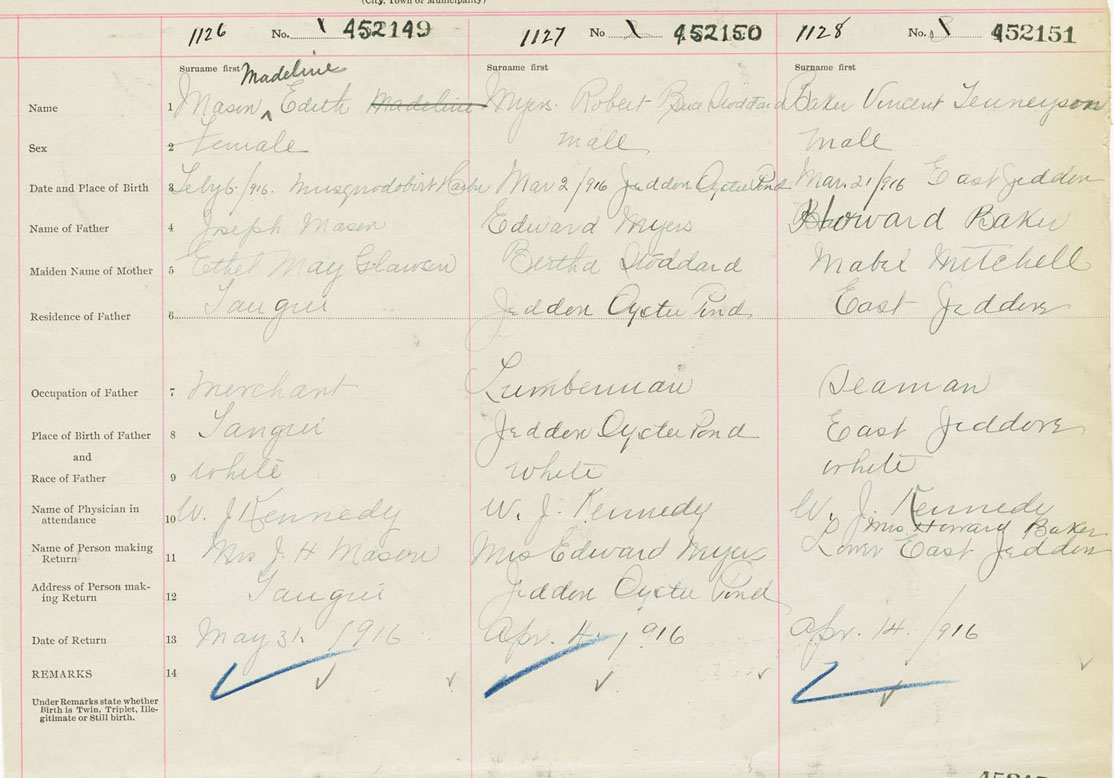 (City, Town or Municipality)
1126 No. 1 452149 1127 No 1 452150 1128 No. 1 452151
Surname first Madeline Surname first Surname first
Name 1 Mason ^ Edith Madeline Myers Robert Stoddard Baker Vincent Tenneyson
Sex 2 Female male male
Date and Place of Birth 3 Feby 6/916. Mar 2/916 Jeddore Oyster Pond Mar. 21/916 East Jeddore
Name of Father 4 Joseph Mason Edward Myers Howard Baker
Maiden Name of Mother 5 Ethel May Glawson Bertha Stoddard Mabel Mitchell
Residence of Father 6 Tangier Jeddore Oyster Pond East Jeddore
Occupation of Father 7 Merchant Lumberman Seaman
Place of Birth of Father 8 Tangier Jeddore Oyster Pond East Jeddore
and
Race of Father 9 white White white
Name of Physician in
attendance 10 W. J. Kennedy W. J. Kennedy W. J. Kennedy
Mrs Howard Baker
Name of Person making
Return 11 Mrs J. H Mason Mrs Edward Myers Lower East Jeddore
Address of Person mak-
ing Return 12 Tangier Jeddore Oyster Pond
Date of Return 13 May 31. 1916 Apr. 4. 1916 Apr. 14. /916
REMARKS 14
Under Remarks state whether
Birth is Twin, Triplet, Ille-
gitimate or Still birth.